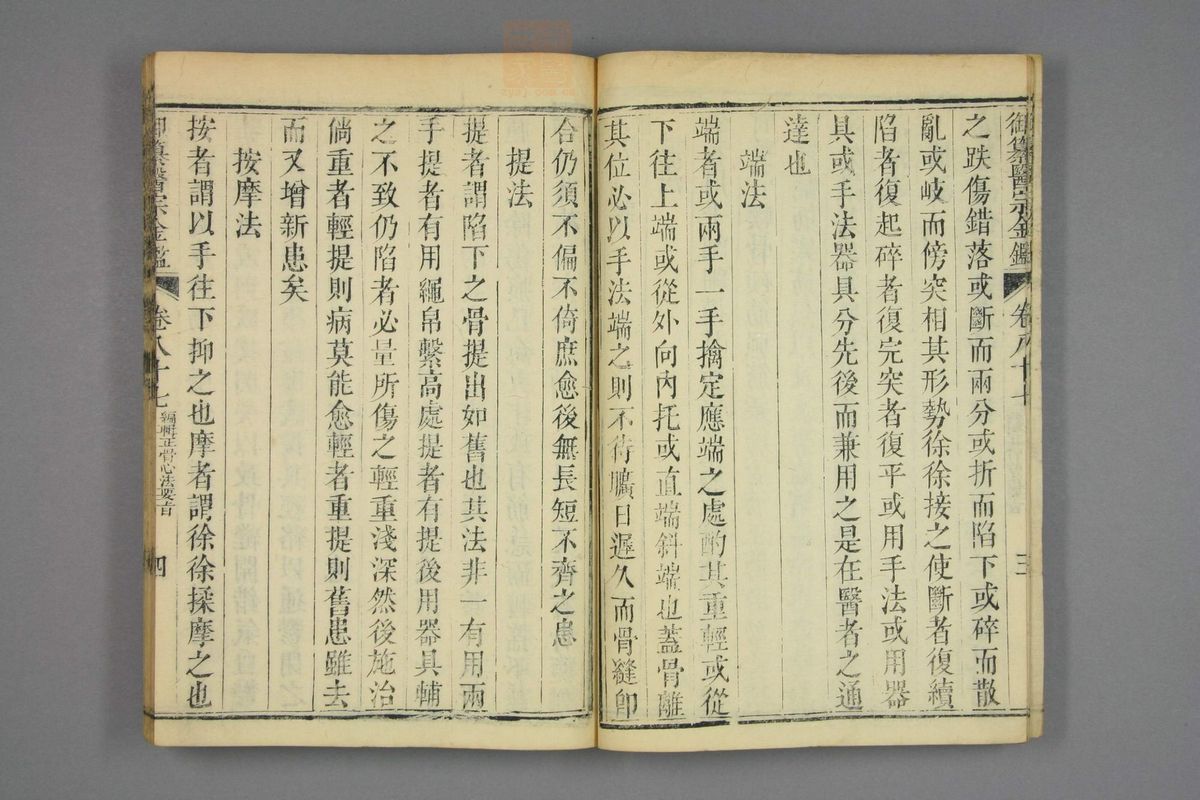 御纂醫宗金鑑 卷八十七 三
之跌傷錯落或斷而兩分或折而陷下或碎而散
亂或岐而傍突相其形勢徐徐接之使斷者復續
陷者復起碎者復完突者復平或用手法或用器
具或手法器具分先後而兼用之是在醫者之通
達也
端法
端者或兩手一手擒定應端之處酌其重輕或從
下往上端或從外向內托或直端斜端也蓋骨離
其位必以手法端之則不待曠日遲久而骨縫卽
合仍須不偏不倚庶愈後無長短不齊之患
提法
提者謂陷下之骨提出如舊也其法非一有用兩
手提者有用繩帛繫高處提者有提後用器具輔
之不致仍陷者必量所傷之輕重淺深然後施治
倘重者輕提則病莫能愈輕者重提則舊患雖去
而又增新患矣
按摩法
按者謂以手往下抑之也摩者謂徐徐揉摩之也
御纂醫宗金鑑 卷八十七 編輯正骨心法要旨 四